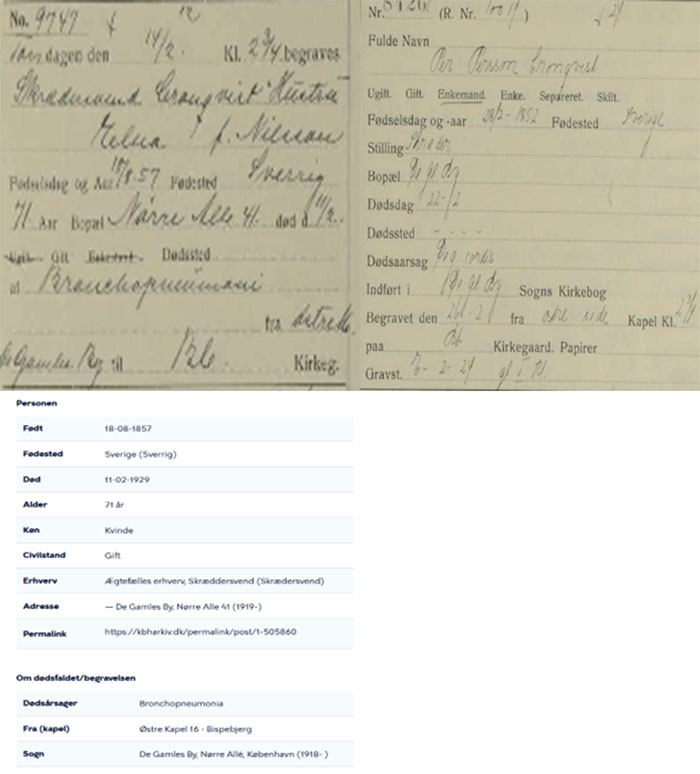 No. 9747 12
dagen den 14/2. Kl. 2 3/4 begraves
Skrædersvend Cronqvist Hustru
Elna f. Nilsson
Fødselsdag og Aar 18/8 57 Fødested Sverrig
71 Aar Bopæl Nørre Alle 41. død d. 11/2.
Ugift Gift Enkestand. Dødssted
af Bronchopneumoni
fra østre K.
De Gamles By til Kirkeg.
Nr. (R. Nr. )
Fulde Navn
Per Persson Cronqvist
Ugift. Gift. Enkemand. Enke. Separeret. Skilt.
Fødselsdag og -aar 28/2 - 1852 Fødested Sverige
Stilling Skræder
Bopæl
Dødsdag 22-/2
Dødssted - - - -
Dødsaarsag
Indført i Sogns Kirkebog
Begravet den fra Kapel Kl.
paa Kirkegaard. Papirer
Gravst.
Personen
Født 18-08-1857
Fødested Sverige (Sverrig)
Død 11-02-1929
Alder 71 år
Køn Kvinde
Civilstand Gift
Erhverv Ægtefælles erhverv, Skræddersvend (Skrædersvend)
Adresse — De Gamles By, Nørre Alle 41 (1919-)
Permalink https://kbharkiv.dk/permalink/post/1-505860
Om dødsfaldet/begravelsen
Dødsårsager Bronchopneumonia
Fra (kapel) Østre Kapel 16 - Bispebjerg
Sogn De Gamles By, Nørre Allé, København (1918- )